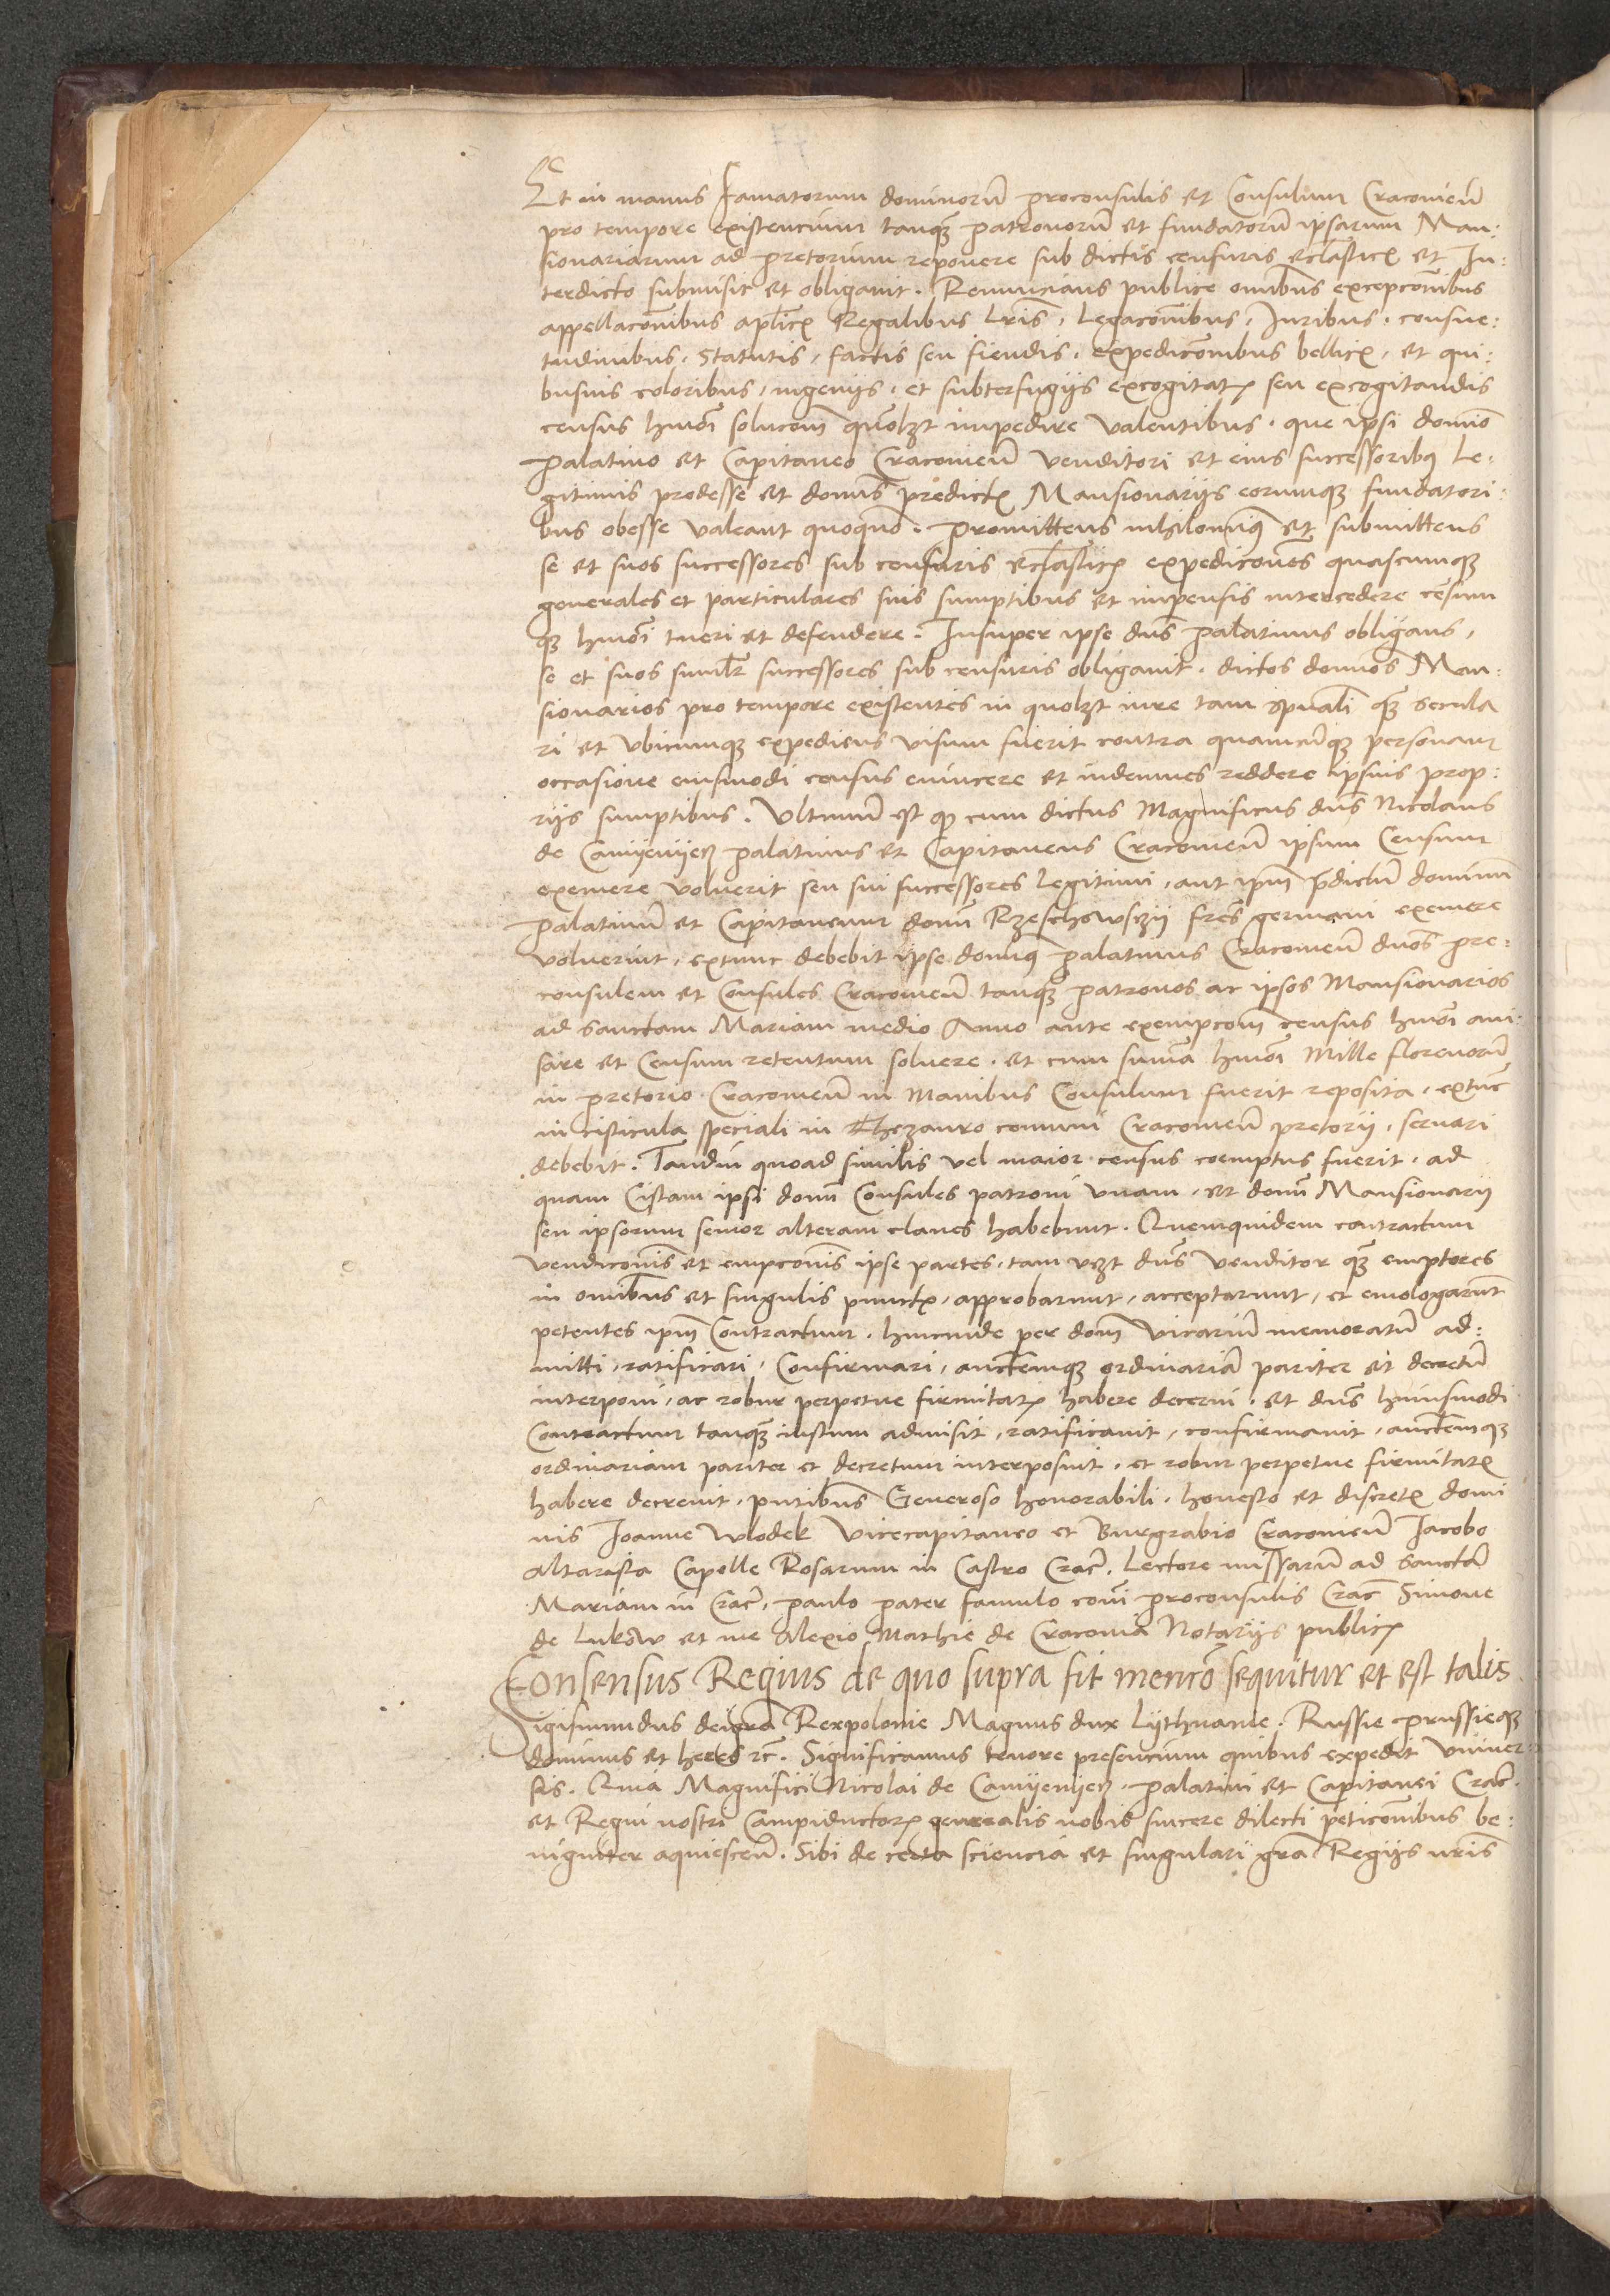 Et in manus famatorum dominorū proconsulis et Consulum Cracovieñ
pro tempore existencium tanqȝ patronorū et fundatorū ipsarum Man:
sionariarum ad pretorium reponere sub dictis censuris ecclasticꝭ et In:
terdicto submisit et obligavit. Renuncians publice omībus excepcoībus
appellacoībus aplicꝭ Regalibus Lrīs, Legacoībus, Iuribus, consue:
tudinibus, Statutis, factis seu fiendis, expedicoībus bellicꝭ, et qui:
busvis coloribus, ingenijs, et subterfugijs excogitatꝭ seu excogitandis
census hmōi solucoēm quolȝt impedire valentibus, que ipsi domīo
palatino et Capitaneo Cracovieñ venditori et eius successoribꝰ Le:
gitimis prodesse et domīs predictꝭ Mansionarijs eorumqȝ fundatori:
bus obesse valeant quoquō. promittens nihilominꝰ et submittens
se et suos successores sub censuris ecclasticꝭ expedicoēs quascumqȝ
generales et particulares suis sumptibus et impensis intercedere censum
qȝ hmōi tueri et defendere. Insuper ipse dn̄s palatinus obligans,
se et suos similr̄ successores sub censuris obligavit, dictos domīos Man:
sionarios pro tempore existentes in quolȝt iure tam spūali qȝ secula
ri et ubicumqȝ expediens visum fuerit contra quamcūqȝ personam
occasione eiusmodi census evincere et indemnes reddere ipsius prop:
rijs sumptibus. Ultimū est qȝ cum dictus Magnificus dn̄s Nicolaus
de Camyenyecȝ palatinus et Capitaneus Cracovieñ ipsum Censum
exemere voluerit seu sui successores legitimi, aut ipm̄ p̄dictū dominū
palatinū et Capitaneum domī Rzeschowsczij frēs germani exemere
voluerint, extunc debebit ipse domīnꝰ palatinus Cracovieñ dnōs pro:
consulem et Consules Cracovieñ tanqȝ patronos ac ipsos Mansionarios
ad Sanctam Mariam medio Anno ante exempcoēm census hmōi avi:
sare et Censum retentum solvere. et cum suma hmōi Mille florenorū
in pretorio Cracovieñ in Manibus Consulum fuerit reposita, extūc
in cisticula speciali in Thezauro comuni Cracovieñ pretorij, servari
debebit. Tamdiu quoad similis vel maior census coemptus fuerit, ad
quam Cistam ipsi domī Consules patroni unam, et domī Mansionarij
seu ipsorum senior alteram claves habebunt. Quemquidem contractum
vendicoīs et empcoīs ipse partes, tam vȝt dn̄s venditor qȝ emptores
in omībus et singulis punctꝭ, approbarunt, acceptarunt, et emologarūt
petentes ipm̄ Contractum, hincinde per dom̄ vicariū memoratū ad:
mitti, ratificari, Confirmari, auctemqȝ ordinariā pariter et decretū
interponi, ac robur perpetue firmitatꝭ habere decerni, et dn̄s huiusmodi
Contractum tanqȝ iustum admisit, ratificavit, confirmavit, auctemqȝ
ordinariam pariter et decretum interposuit, et robur perpetue firmitatꝭ
habere decrevit, pntibus Generoso honorabili, honesto et discretꝭ domi
nis Ioanne Wlodek Vicecapitaneo et Burgrabio Cracovieñ Iacobo
altarista Capelle Rosarum in Castro Crac̄. Lectore missarū ad sanctā
Mariam in Crac̄, paulo pater famulo coīi proconsulis Crac̄ Simone
de Lukow et me Alexio Mathie de Cracovia Notarijs publicꝭ
Consensus Regius de quo supra fit mencō sequitur et est talis
Sigismundus dei grā Rex polonie Magnus dux Lijthuanie, Russie prussieqȝ
dominus et heres ⁊c̄. Significamus tenore presencium quibus expedit Univer:
sis. Quia Magnifici Nicolai de Camyenyecȝ, palatini et Capitanei Crac̄.
et Regni nostri Campiductorꝭ generalis nobis sincere dilecti peticoībus be:
nigniter aquiesceñ. Sibi de certa sciencia et singulari grā Regijs nrīs